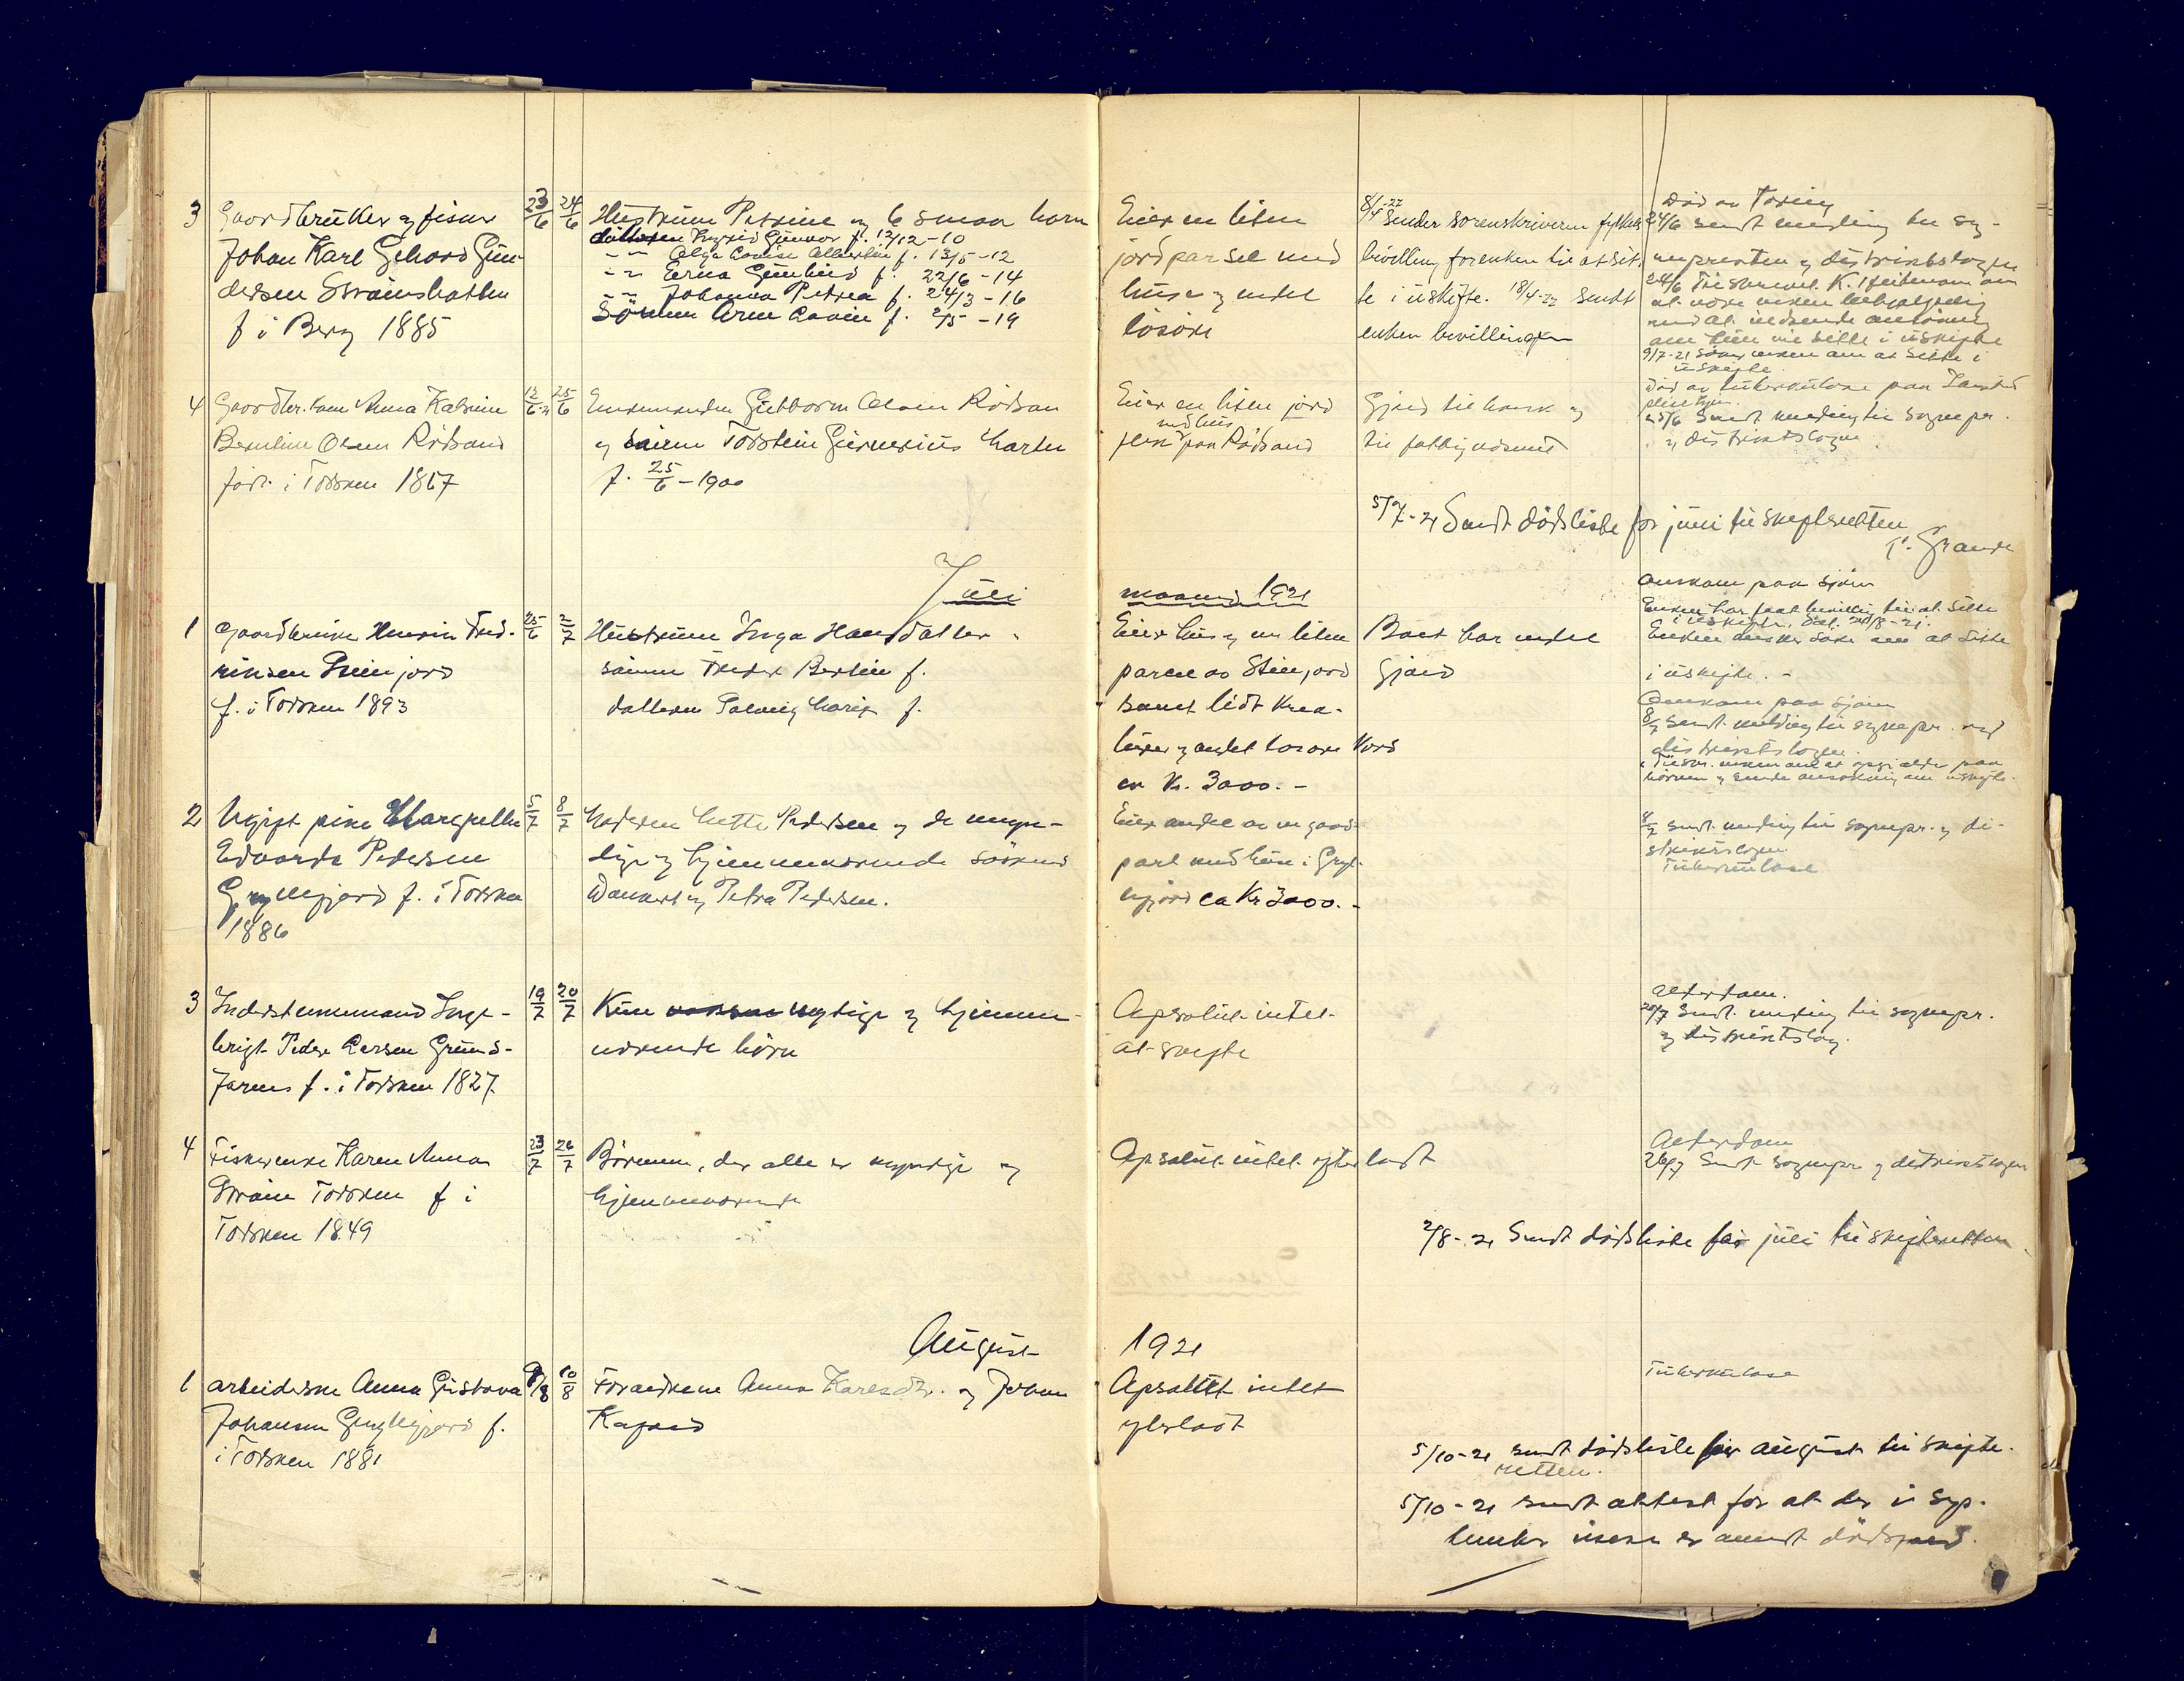 3 Gaardbruker og fisker
Johan Karl Gehard Gun-
dersen Straumsbotten
f i Berg 1885
23/6 24/6
Hustruen Petrine og 6 smaa barn
datteren Ingrid Gunvor f. 12/12-10
-"- Olga Louise Albertin f. 13/5-12
-"- Erna Gunhild f. 22/6-14
-"- Johanna Petrea f. 24/3-16
Sönnen Arne f. 2/5-19
Eier en liten
jordparsel med
huse og endel
lösöre
8/4-22 Sender sorenskriveren fylkets
bevilling for enken til at sit-
te i uskifte. 18/4-22 Sendt
enken bevillingen
Död av Tæring
24/6 sendt melding til sog-
nepresten og distriktslægen
24/6 Tilskrevet K. om
at være enken behjælpelig
med at indsende ansökning
om hun vil sitte i uskifte
9/7-21 Söker enken om at sitte i
uskifte.
4 Gaardbr. kone Anna Katrine
Berntine Olsen Rödsand
född i Torsken 1867
12/6-21 25/6
Enkemanden Guttorm Olsen Rödsan
og sönnen Torstein
f. 25/6-1900
Eier en liten jord
med hus
paa Rödsand
Gjæld til bank og
til
Död av tuberkulose paa
25/6 Sendt melding til sognepr.
og distriktslægen
5/7-21 Sendt dödsliste for juni til skifteretten
T. Grande
Juli
maaned 1921
1 Gaardbruker Henrik Fred-
riksen Steinjord
f. i Torsken 1893
25/6 2/7
Hustruen Inga Hansdatter
sönnen Peder Bertin f.
datteren Solveig Marie f.
Eier hus og en liten
parcel av Steinjord
samt lidt krea-
turer og andet lösöre værd
ca Kr. 3000.-
Boet har endel
Gjæld
Omkom paa Sjöen
Enken har faat bevilling til at sitte
i uskifte, dat. 20/8-21.
Enken ønsker söke om at sitte
i uskifte.-
Omkom paa Sjöen
8/7 Sendt melding til sognepr. og
distriktslægen.
Tilskr. enken om at opgi alder paa
börnene og sende ansökning om uskifte.
2 Ugift pike Margrethe
Edvarda Pedersen
Gryllefjord f. i Torsken
1886
5/7 8/7
Moderen Mette Pedersen og de myn-
dige og hjemmeværende söskend
Dankert og Petra Pedersen.
Eier andel av en gaard-
part med hus i Gryl-
lefjord ca Kr 3000.-
8/7 sendt melding til sognepr. og di-
striktslægen
Tuberkulose
3 Inderstenkemand Inge-
brigt Peder Larsen Gruns-
farnes f. i Torsken 1827
19/7 20/7
Kun myndige og hjemme-
værende börn
Apsolut intet
at skifte
Alderdom.
20/7 Sendt melding til sognepr.
og distriktslæg.
4 Fiskerenke Karen Anna
Torsken f i
Torsken 1849
23/7 26/7
Börnene, der alle er myndige og
hjemmeværende
Apsolut intet efterladt
Alderdom
26/7 Sendt sognepr og distriktslægen
2/8-21 Sendt dödsliste for juli til skifteretten
August
1921
1 arbeiderske Anna Gustava
Johansen Gryllefjord f.
i Torsken 1881
9/8 10/8
Forældrene Anna Karlsdtr. og Johan
Kafjeld
Apsolut intet
efterladt
Tuberkulose
5/10-21 sendt dödsliste for august til skifte-
retten.
5/10-21 sendt attest for at der i Sep-
tember ikke er anmeldt dödsfald.